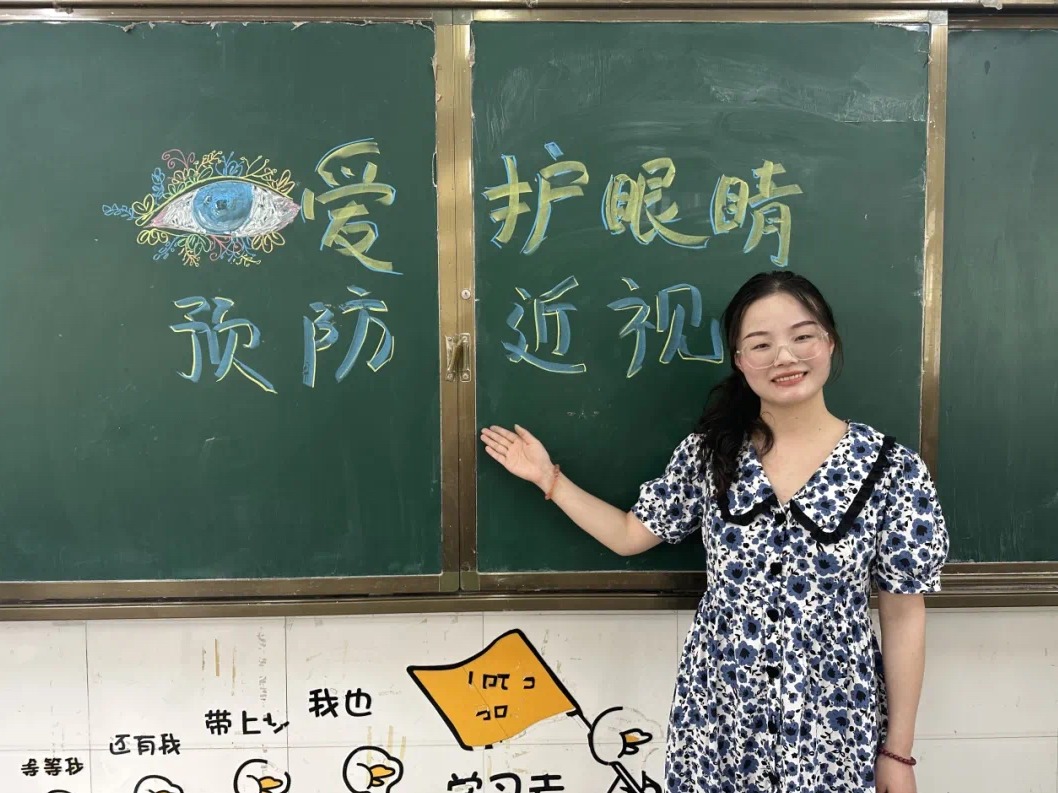 爱护眼睛
预防近视
我也
带上
还有我
等等我
学习去